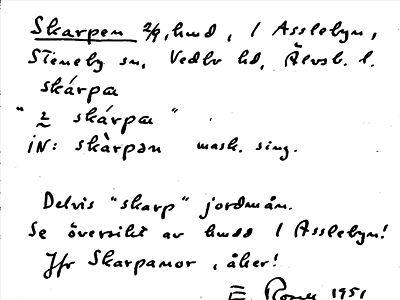 Skarpen 2/9, hmd, 1 Asslebyn,
Steneby sn, Vedbo hd, Älvsb. l.
skárpa
" 2 skárpa "
iN: skàrpən mask. sing.
Delvis "skarp" jordmån.
Se översikt av hmdd 1 Asslebyn!
Jfr Skarpamor, åker!
E. 1951